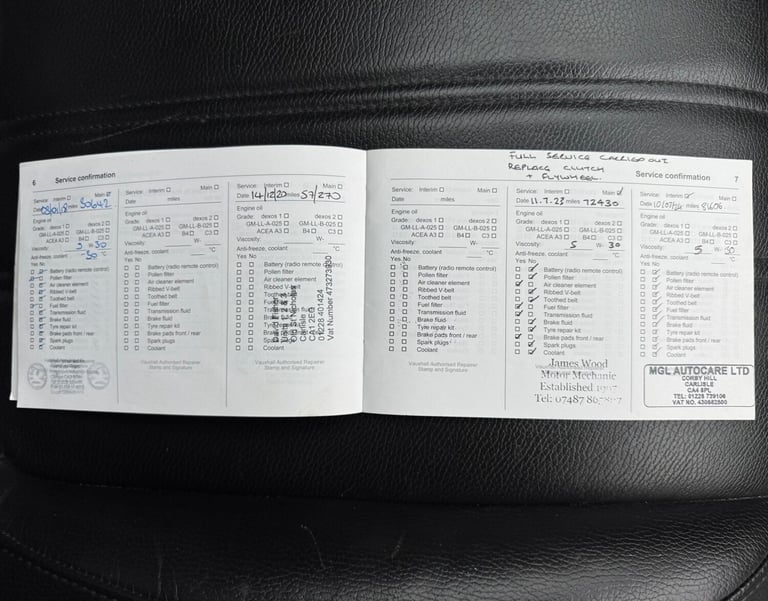 6 Service confirmation
Service: Interim Main
Date miles 30642
Engine oil
Grade: dexos 1 dexos 2
GM-LL-A-025 GM-LL-B-025
ACEA A3 B4 C3
Viscosity: 5 W- 30
Anti-freeze, coolant -30 °C
Yes No
Battery (radio remote control)
Pollen filter
Air cleaner element
Ribbed V-belt
Toothed belt
Fuel filter
Transmission fluid
Brake fluid
Tyre repair kit
Brake pads front / rear
Spark plugs
Coolant
Service: Interim Main
Date miles
Engine oil
Grade: dexos 1 dexos 2
GM-LL-A-025 GM-LL-B-025
ACEA A3 B4 C3
Viscosity: W-
Anti-freeze, coolant °C
Yes No
Battery (radio remote control)
Pollen filter
Air cleaner element
Ribbed V-belt
Toothed belt
Fuel filter
Transmission fluid
Brake fluid
Tyre repair kit
Brake pads front / rear
Spark plugs
Coolant
Vauxhall Authorised Repairer
Stamp and Signature
Service: Interim Main
Date 14/12/20 miles 57/270
Engine oil
Grade: dexos 1 dexos 2
GM-LL-A-025 GM-LL-B-025
ACEA A3 B4 C3
Viscosity: W-
Anti-freeze, coolant °C
Yes No
Battery (radio remote control)
Pollen filter
Air cleaner element
Ribbed V-belt
Toothed belt
Fuel filter
Transmission fluid
Brake fluid
Tyre repair kit
Brake pads front / rear
Spark plugs
Coolant
Carlisle
CA1 2EG
01228 401424
Vat Number 473273900
Vauxhall Authorised Repairer
Stamp and Signature
FULL SERVICE CARRIED OUT
REPLACE CLUTCH
+ FLYWHEEL.
Service confirmation 7
Service: Interim Main
Date miles
Engine oil
Grade: dexos 1 dexos 2
GM-LL-A-025 GM-LL-B-025
ACEA A3 B4 C3
Viscosity: W-
Anti-freeze, coolant °C
Yes No
Battery (radio remote control)
Pollen filter
Air cleaner element
Ribbed V-belt
Toothed belt
Fuel filter
Transmission fluid
Brake fluid
Tyre repair kit
Brake pads front / rear
Spark plugs
Coolant
Vauxhall Authorised Repairer
Stamp and Signature
Service: Interim Main
Date 11.7.23 miles 72430
Engine oil
Grade: dexos 1 dexos 2
GM-LL-A-025 GM-LL-B-025
ACEA A3 B4 C3
Viscosity: 5 W- 30
Anti-freeze, coolant °C
Yes No
Battery (radio remote control)
Pollen filter
Air cleaner element
Ribbed V-belt
Toothed belt
Fuel filter
Transmission fluid
Brake fluid
Tyre repair kit
Brake pads front / rear
Spark plugs
Coolant
James Wood
Motor Mechanic
Established
Tel: 07487
Service: Interim Main
Date 10/07/24 miles 81606
Engine oil
Grade: dexos 1 dexos 2
GM-LL-A-025 GM-LL-B-025
ACEA A3 B4 C3
Viscosity: 5 W- 30
Anti-freeze, coolant °C
Yes No
Battery (radio remote control)
Pollen filter
Air cleaner element
Ribbed V-belt
Toothed belt
Fuel filter
Transmission fluid
Brake fluid
Tyre repair kit
Brake pads front / rear
Spark plugs
Coolant
MGL AUTOCARE LTD
CORBY HILL
CARLISLE
CA4 8PL
TEL: 01228 739106
VAT NO. 430682500